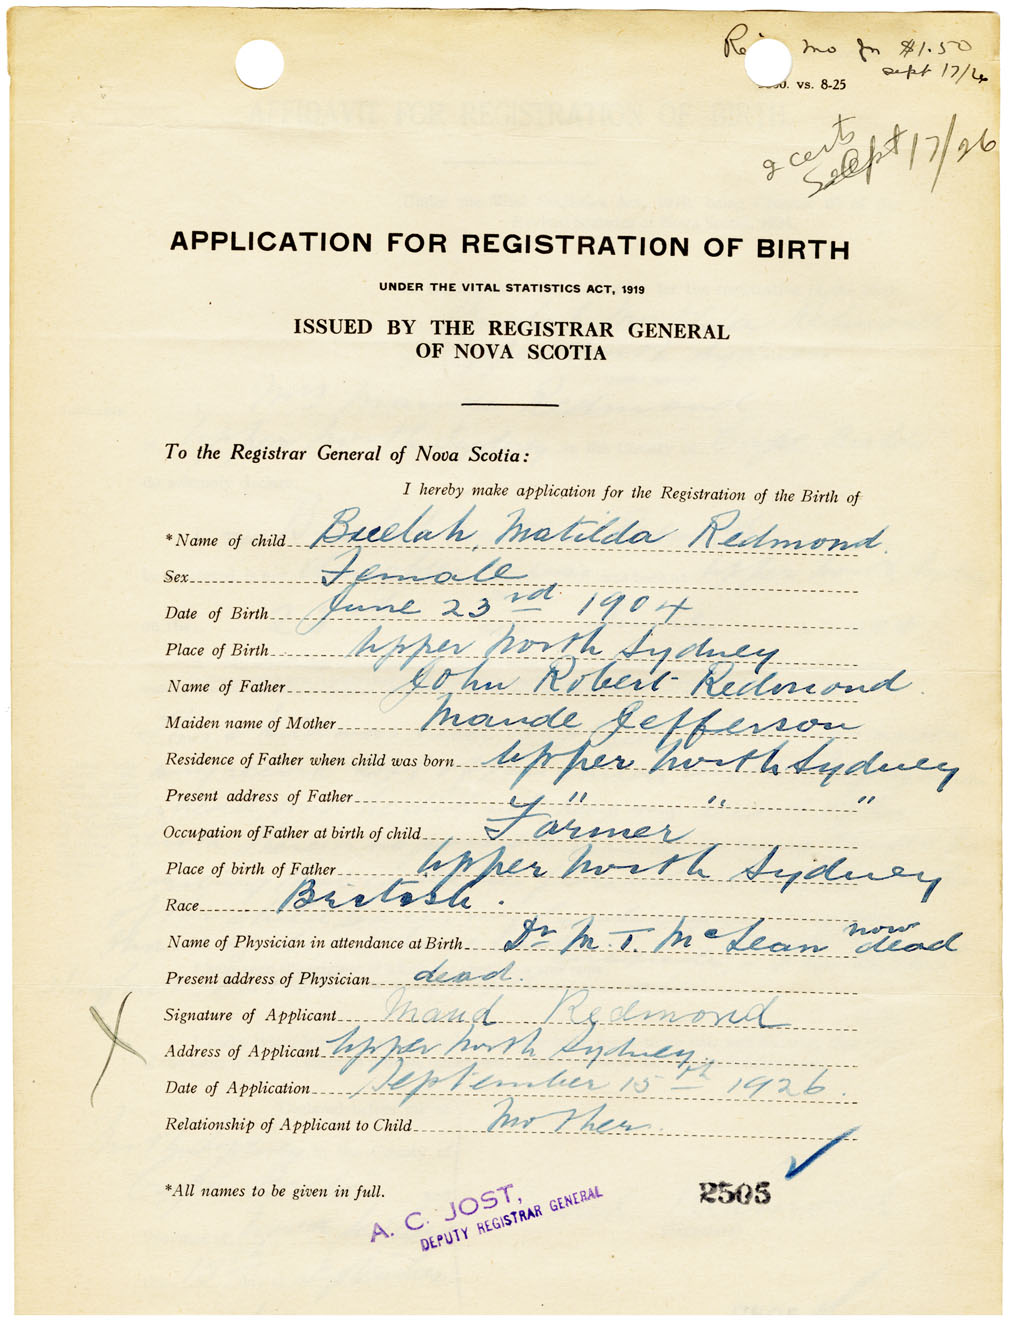 mo Jn $1.50
Sept 17/26
vs. 8-25
2 certs
Sept 17/26
APPLICATION FOR REGISTRATION OF BIRTH
UNDER THE VITAL STATISTICS ACT, 1919
ISSUED BY THE REGISTRAR GENERAL
OF NOVA SCOTIA
To the Registrar General of Nova Scotia:
I hereby make application for the Registration of the Birth of
*Name of child Beulah Matilda Redmond
Sex Female
Date of Birth June 23rd 1904
Place of Birth Upper North Sydney
Name of Father John Robert Redmond
Maiden name of Mother Maude Jefferson
Residence of Father when child was born Upper North Sydney
Present address of Father " " "
Occupation of Father at birth of child Farmer
Place of birth of Father Upper North Sydney
Race British.
Name of Physician in attendance at Birth Dr M. T. McLean now dead
Present address of Physician dead.
Signature of Applicant Maud Redmond
Address of Applicant Upper North Sydney
Date of Application September 15th 1926.
Relationship of Applicant to Child Mother
*All names to be given in full.
2505
A. C. JOST,
DEPUTY REGISTRAR GENERAL